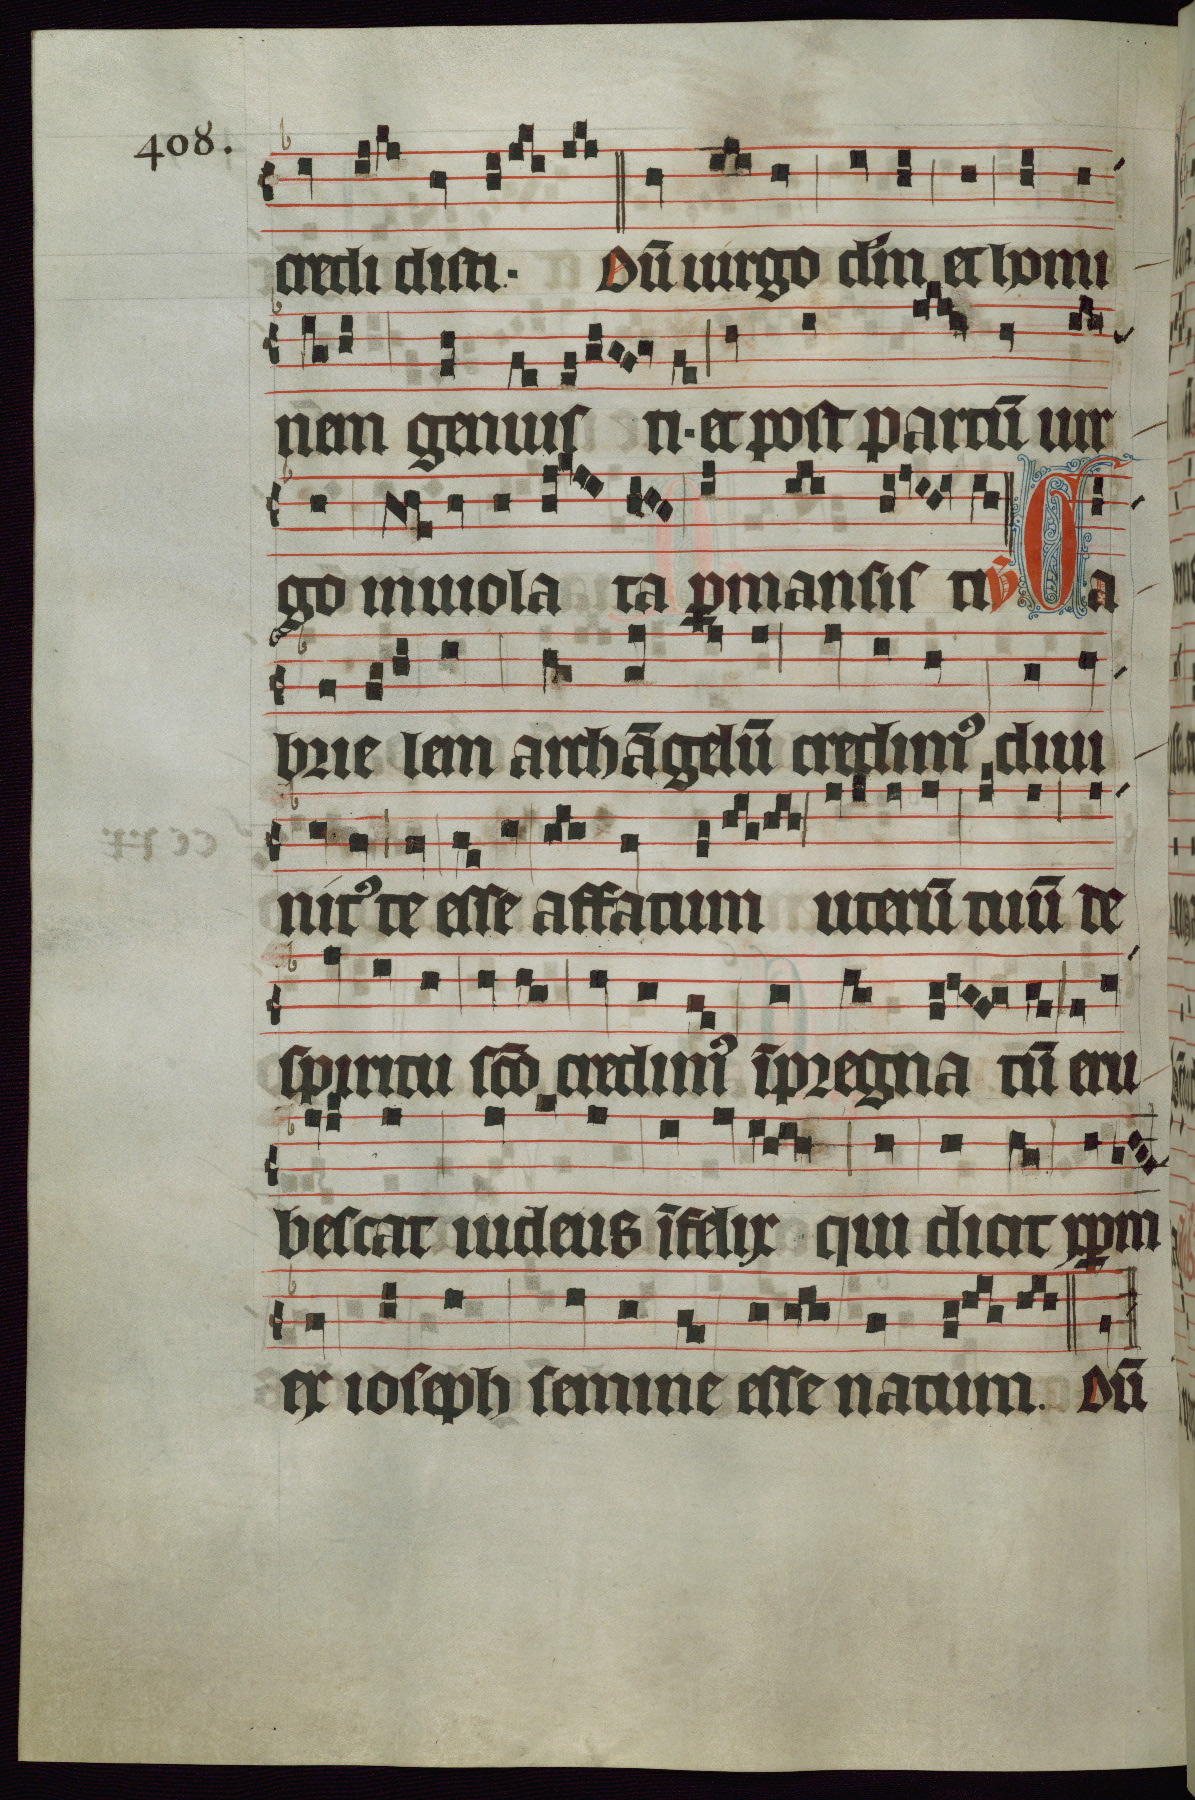 408.
credi disti. Dū uirgo dm̄ et homi
nem genuis ti. et post partū uir
go inuiola ta ꝑmansis ti ℣ Ga
brie lem archāgelū credimꝰ diui
nitꝰ te esse affatum uterū tuū de
spiritu sc̄o credimꝰ īpregna tū eru
bescat iudeus īfelix qui dicit xp̄m
ex ioseph semine esse natum. Dū